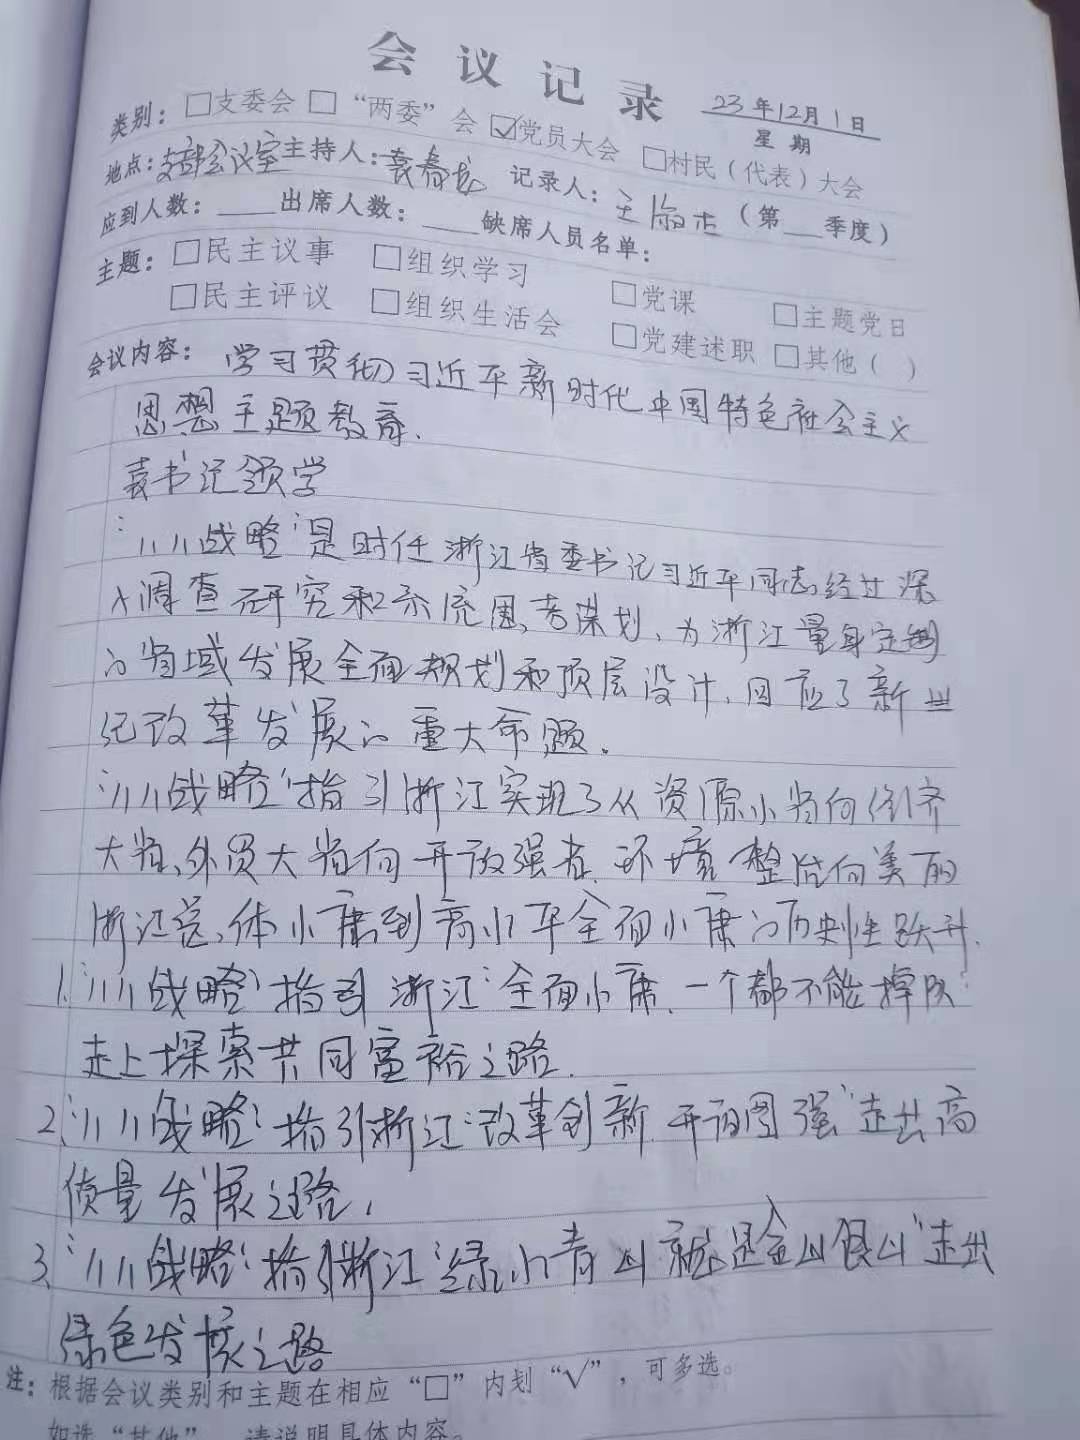 会议记录
23年12月1日
星期
类别：□支委会 □“两委”会 ☑党员大会 □村民（代表）大会
地点：支部会议室 主持人：袁春龙 记录人：王 （第___季度）
应到人数：____ 出席人数：____ 缺席人员名单：
主题：□民主议事 □组织学习 □党课 □主题党日
□民主评议 □组织生活会 □党建述职 □其他（ ）
会议内容：学习贯彻习近平新时代中国特色社会主义
思想主题教育.
袁书记领学
“八八战略”是时任浙江省委书记习近平同志经过深
入调查研究和系统思考谋划、为浙江量身定制
的省域发展全面规划和顶层设计、回应了新世
纪改革发展的重大命题.
“八八战略”指引浙江实现了从资源小省向经济
大省、外贸大省向开放强省、环境整治向美丽
浙江总体小康到高水平全面小康的历史性跃升.
1、“八八战略”指引浙江“全面小康、一个都不能掉队”
走上探索共同富裕之路.
2、“八八战略”指引浙江“改革创新、开放图强”走出高
质量发展之路，
3、“八八战略”指引浙江“绿水青山就是金山银山”走出
绿色发展之路
注：根据会议类别和主题在相应“□”内划“√”，可多选。
如选“其他”，请说明具体内容。